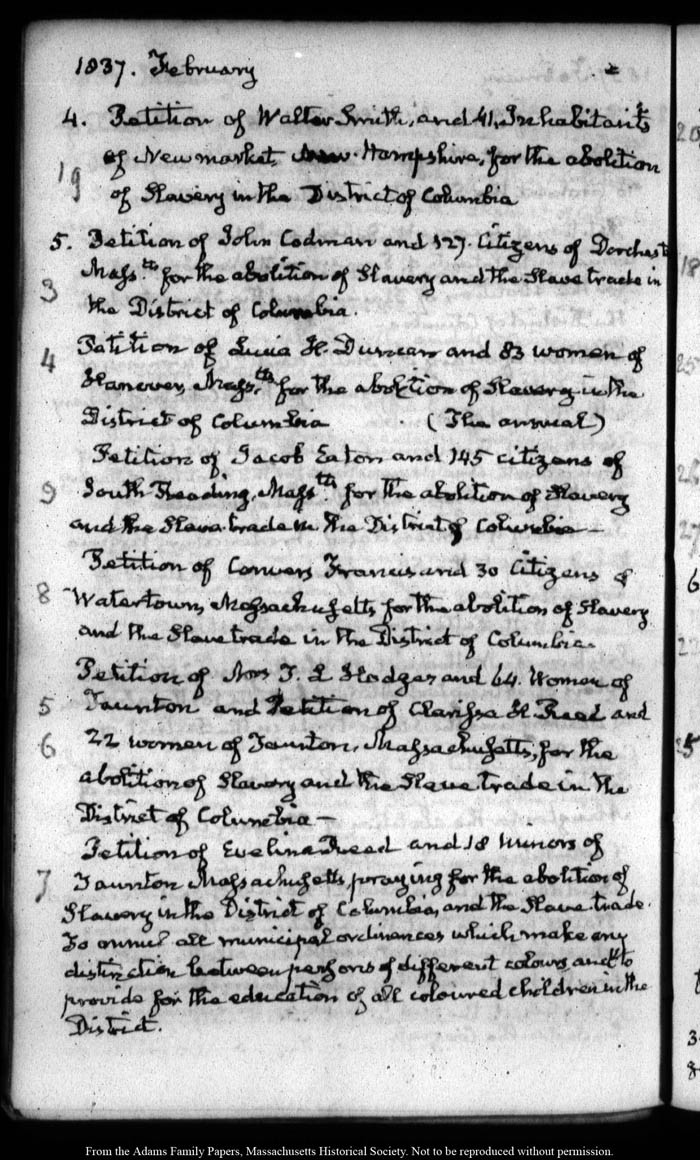 1837. February
4. Petition of Walter Smith, and 41, Inhabitants
of Newmarket New-Hampshire, for the abolition
19
of Slavery in the District of Columbia
5. Petition of John Codman and 127. Citizens of Dorchest
Massts. for the abolition of Slavery and the Slave trade in
3
the District of Columbia.
Petition of Lucia H. Duncan and 83 women of
4
Hanover, Massts. for the abolition of Slavery in the
District of Columbia (The annual)
Petition of Jacob Eaton and 145 citizens of
9 South Reading, Massts. for the abolition of Slavery
and the Slave trade in the District of Columbia—
Petition of Convers Francis and 30 Citizens of
8 Watertown, Massachusetts, for the abolition of Slavery
and the Slave trade in the District of Columbia.
Petition of Mrs T. L Hodges and 64. Women of
5 Taunton and Petition of Clarissa H. Reed and
6 22 women of Taunton, Massachusetts, for the
abolition of Slavery and the Slave trade in the
District of Columbia—
Petition of Evelina Reed and 18 minors of
7 Taunton Massachusetts, praying for the abolition of
Slavery in the District of Columbia, and the Slave trade.
To annul all municipal ordinances which make any
distinction between persons of different colours, and to
provide for the education of all coloured children in the
District.
From the Adams Family Papers, Massachusetts Historical Society. Not to be reproduced without permission.